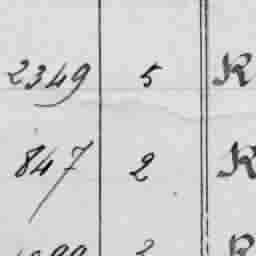 2349 5 K
847 2 K